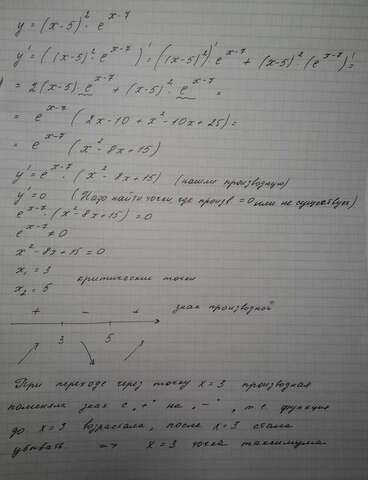 y = (x-5)² · e^(x-7)
y' = ((x-5)² · e^(x-7))' = ((x-5)²)' · e^(x-7) + (x-5)² · (e^(x-7))' =
= 2(x-5) · e^(x-7) + (x-5)² · e^(x-7) =
= e^(x-7) (2x-10+x²-10x+25) =
= e^(x-7) (x²-8x+15)
y' = e^(x-7) · (x²-8x+15) (нашли производную)
y' = 0 (Надо найти точки где произв =0 или не существует)
e^(x-7) · (x²-8x+15) = 0
e^(x-7) ≠ 0
x²-8x+15=0
x₁ = 3
x₂ = 5 критические точки
+ - + знак производной
3 5
При переходе через точку x=3 производная
поменяла знак с "+" на "-", т.е. функция
до x=3 возрастала, после x=3 стала
убывать => x=3 точка максимума